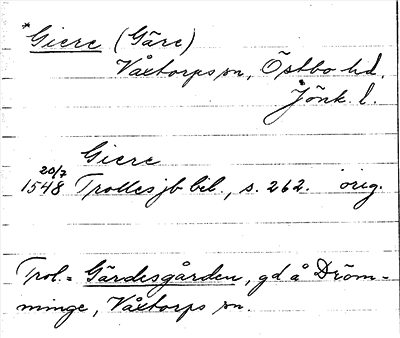 *Giere (Gäre)
Våxtorps sn, Östbo hd,
Jönk. l.
Giere
20/7
1548 Trolles jb bil., s. 262. orig.
Trol. = Gärdesgården, gd å Dröm-
minge, Våxtorps sn.